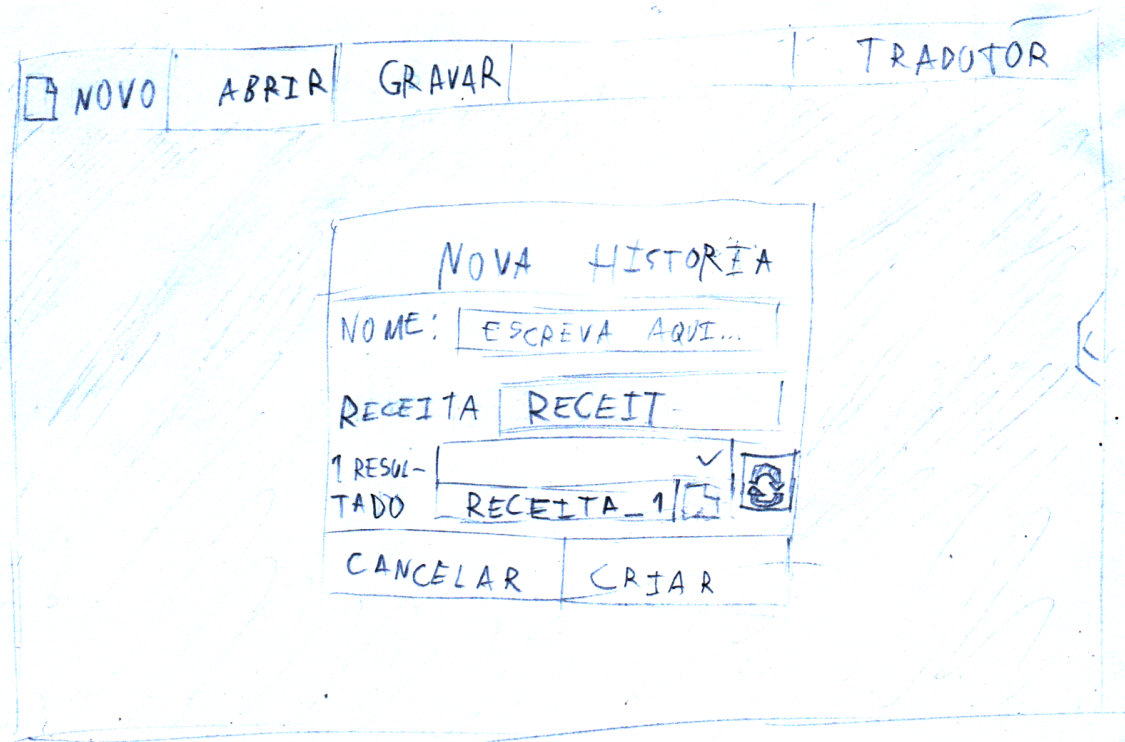 NOVO ABRIR GRAVAR TRADUTOR
NOVA HISTORIA
NOME: ESCREVA AQUI...
RECEITA RECEIT
1 RESUL-
TADO RECEITA_1
CANCELAR CRIAR